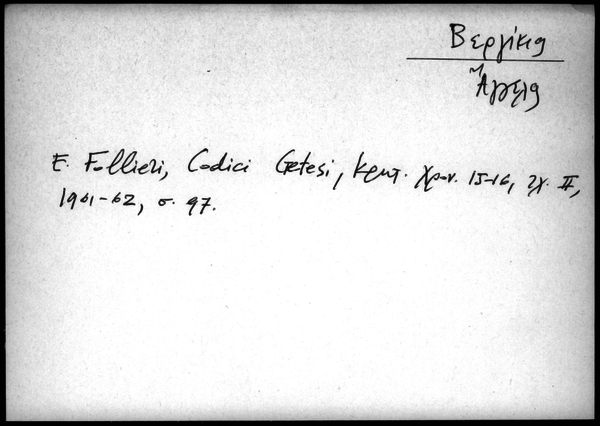 Βεργίκιος
Ἄγγελος
E. Follieri, Codici Cretesi, Κρητ. Χρον. 15-16, τχ. II,
1961-62, σ. 97.